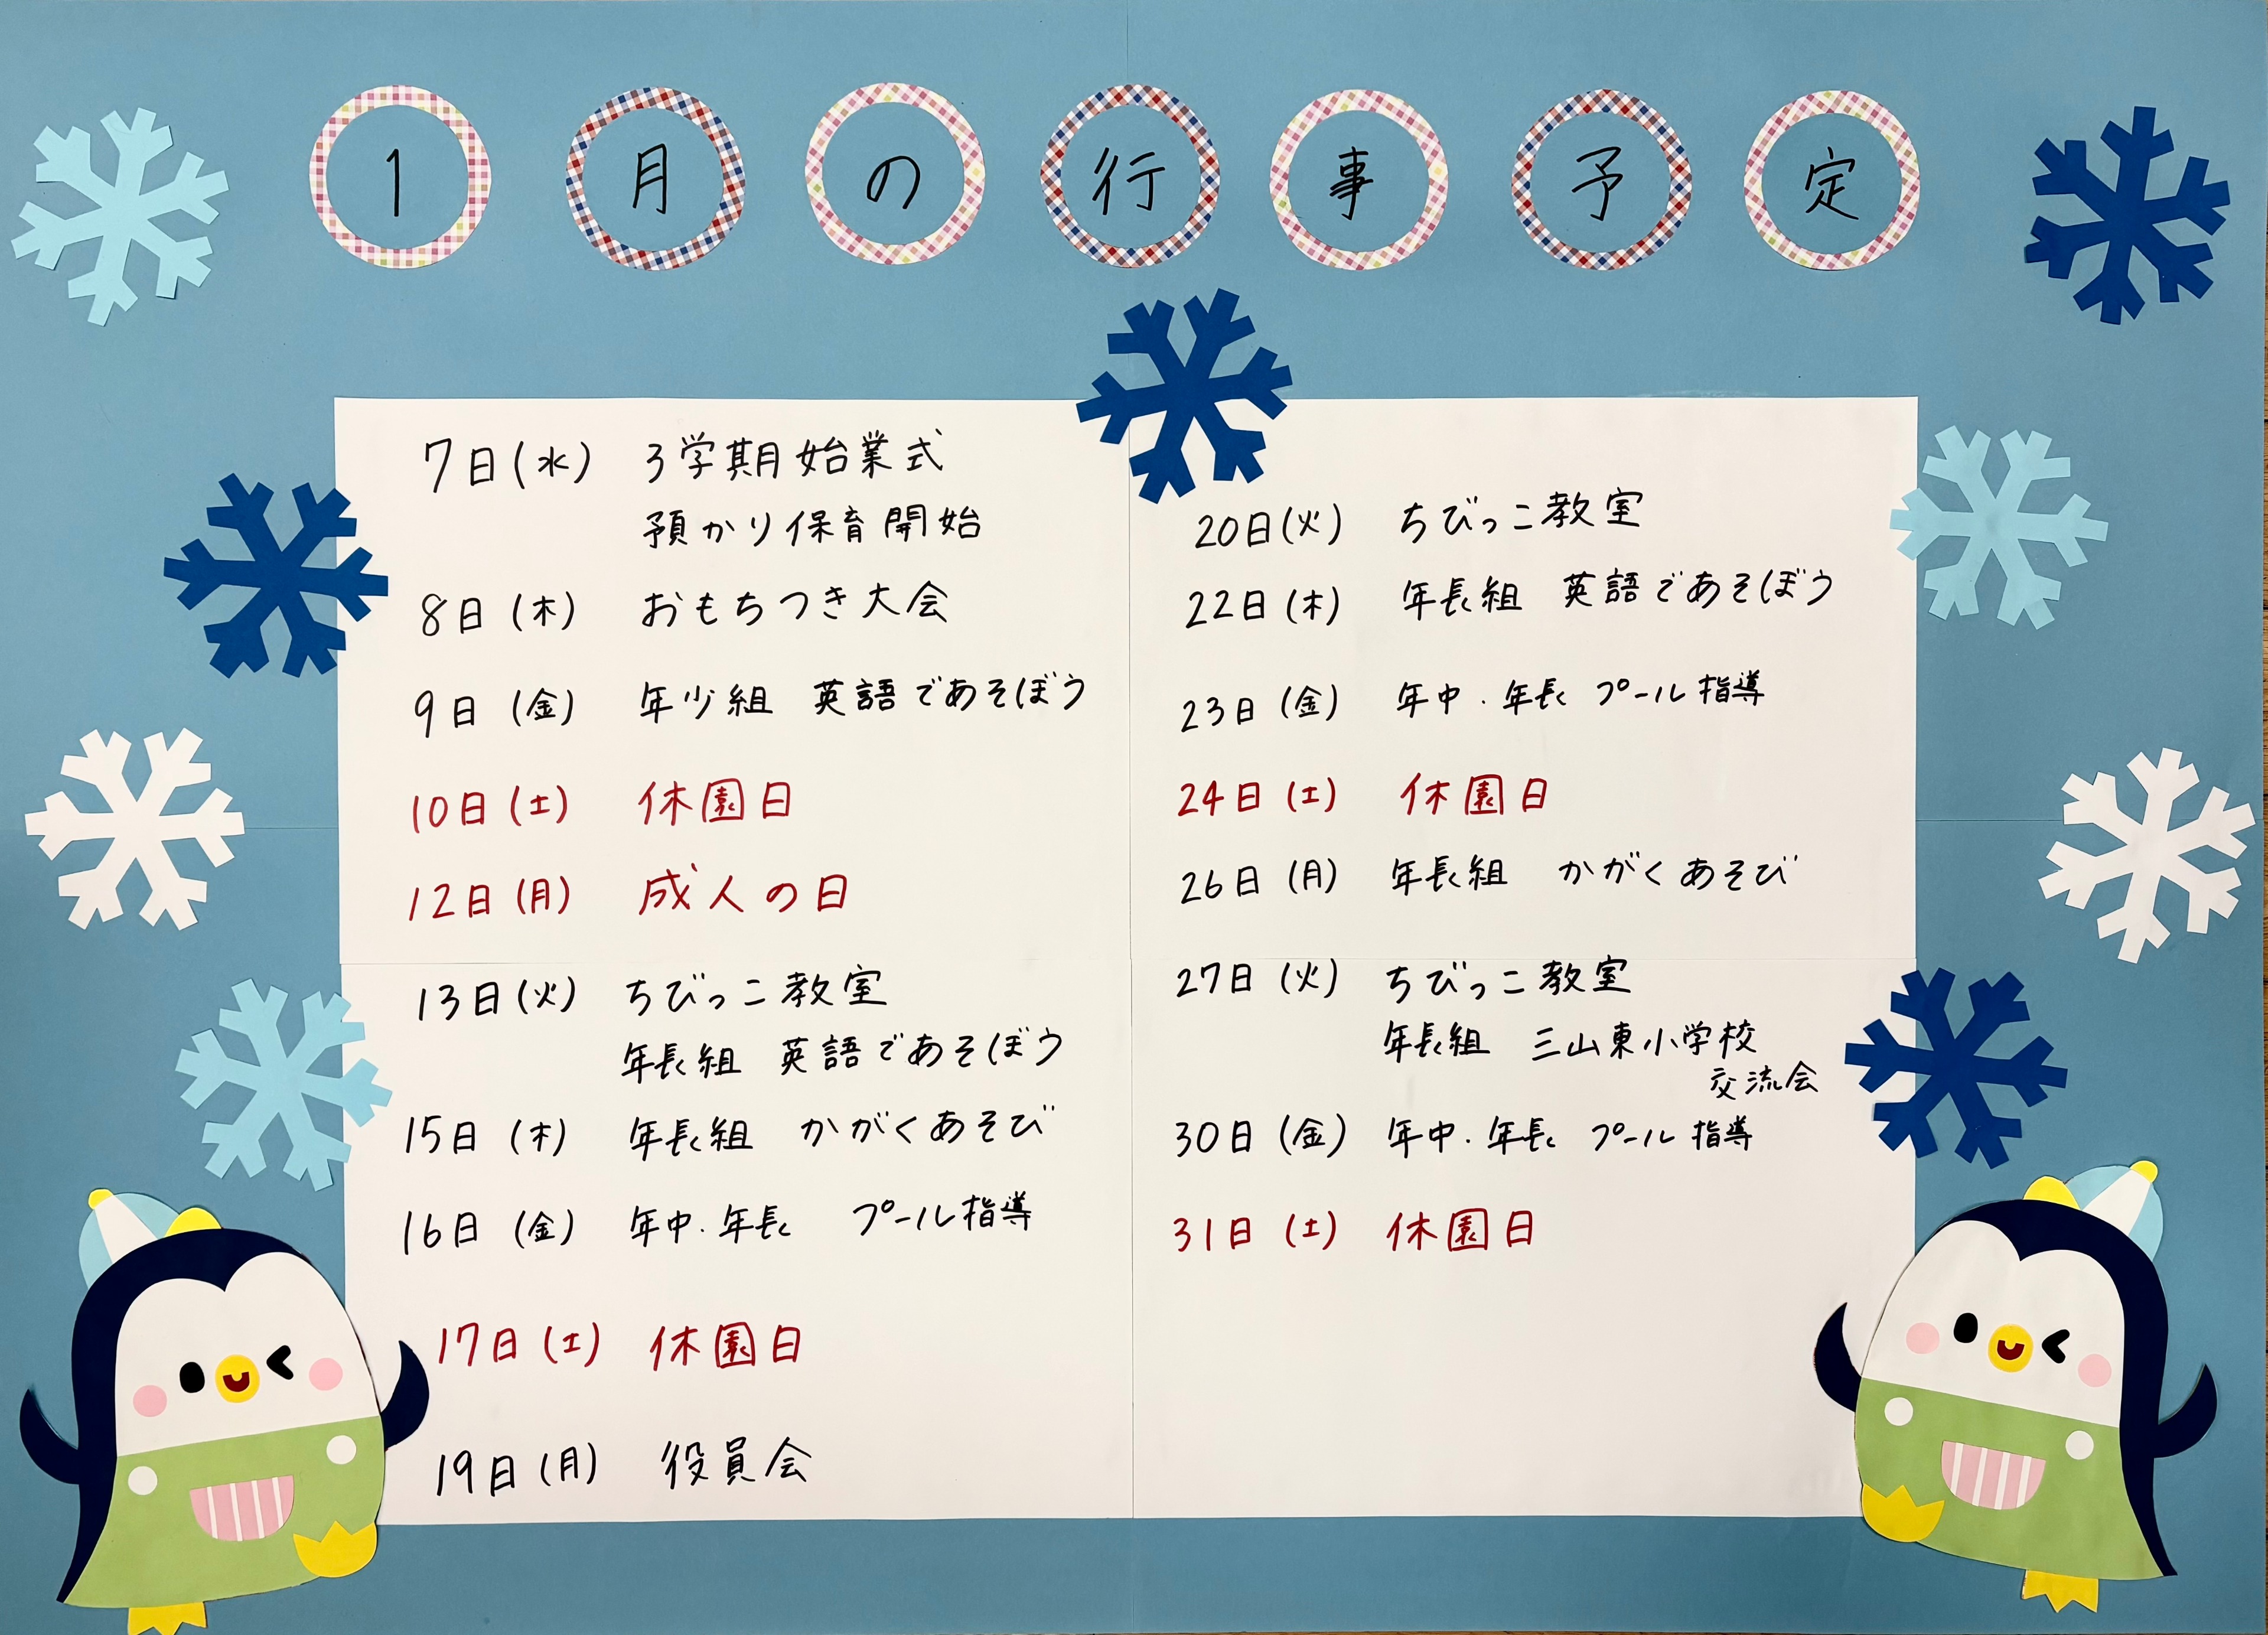 1月の行事予定
7日(水) 3学期始業式
預かり保育開始
8日(木) おもちつき大会
9日(金) 年少組 英語であそぼう
10日(土) 休園日
12日(月) 成人の日
13日(火) ちびっこ教室
年長組 英語であそぼう
15日(木) 年長組 かがくあそび
16日(金) 年中・年長 プール指導
17日(土) 休園日
19日(月) 役員会
20日(火) ちびっこ教室
22日(木) 年長組 英語であそぼう
23日(金) 年中・年長 プール指導
24日(土) 休園日
26日(月) 年長組 かがくあそび
27日(火) ちびっこ教室
年長組 三山東小学校
交流会
30日(金) 年中・年長 プール指導
31日(土) 休園日